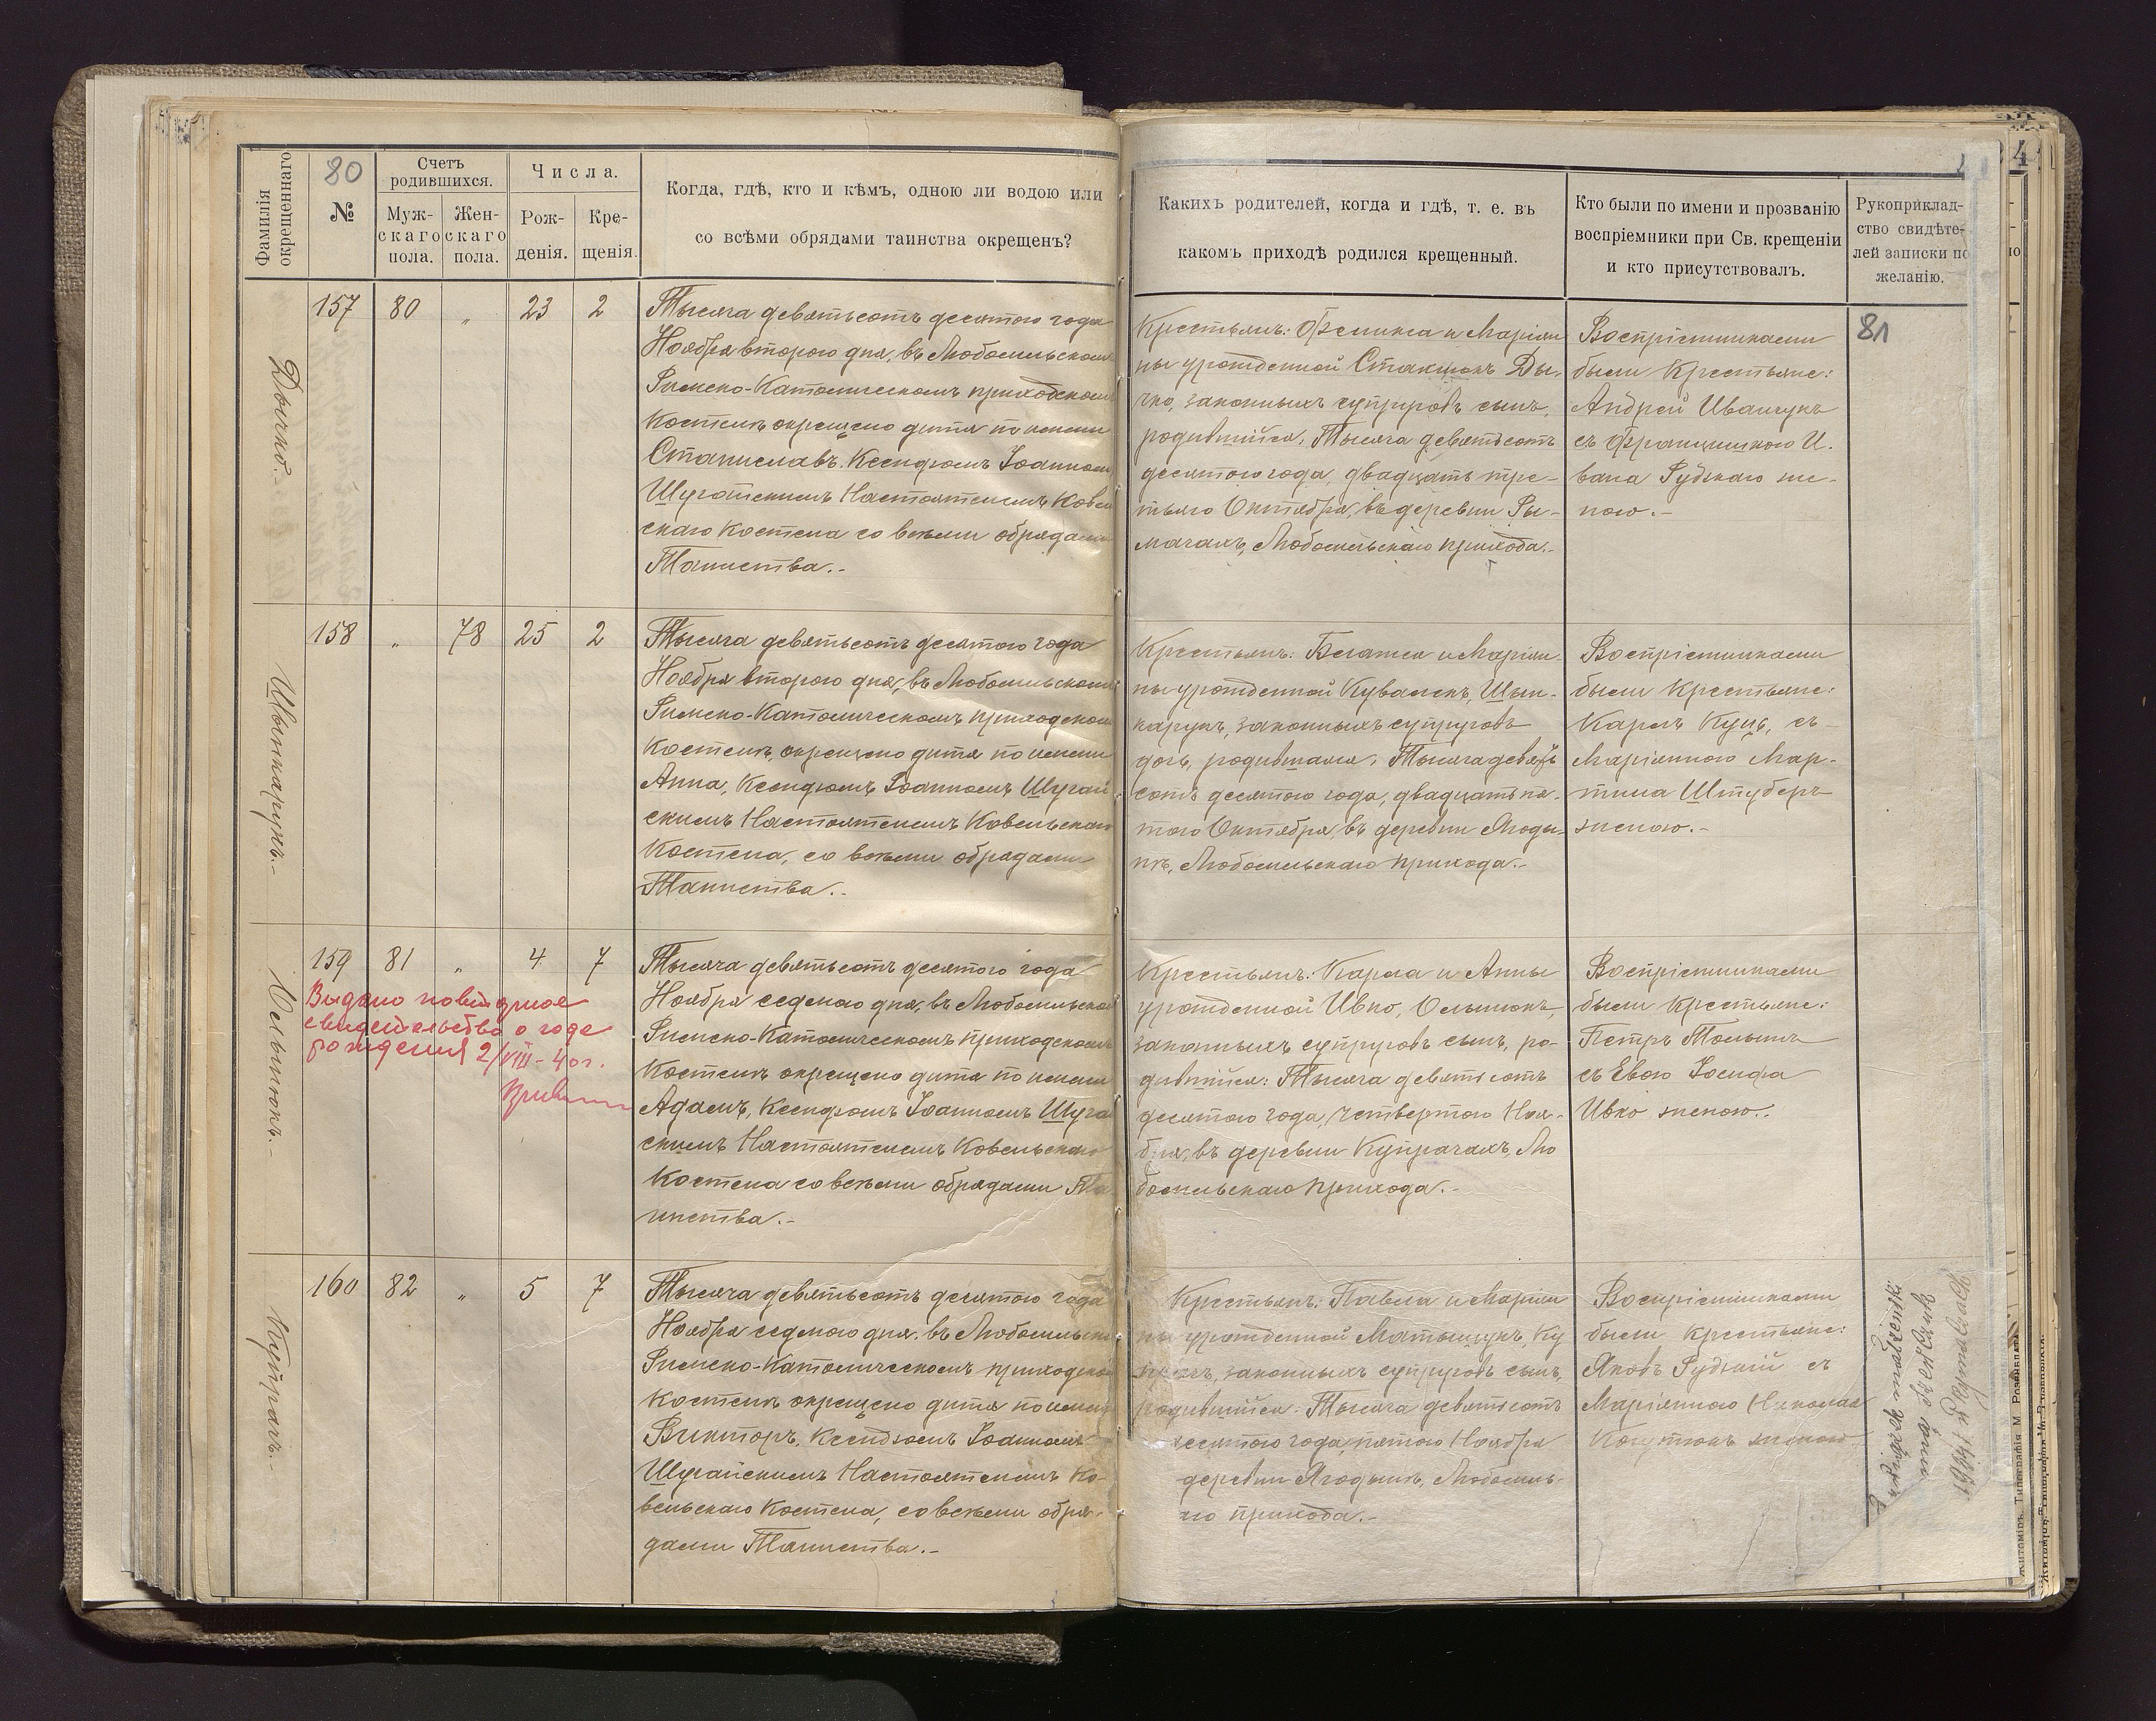 80
Фамилія
окрещеннаго
№
Счетъ
родившихся.
Муж-
скаго
пола.
Жен-
скаго
пола.
Числа.
Рож-
денія.
Кре-
щенія.
Когда, гдѣ, кто и кѣмъ, одною ли водою или
со всѣми обрядами таинства окрещенъ?
Каких​ъ родителей, когда и гдѣ, т. е. въ
какомъ приходѣ родился крещенный.
Кто были по имени и прозванію
воспріемники при Св. крещеніи
и кто присутствовалъ.
Рукоприклад-
ство свидѣте-
лей записки по
желанію.
Дычко.-
157 80 „ 23 2
Тысяча девятьсотъ десятого года
Ноября второго дня, въ Любомльскомъ
Римско-Католическомъ приходскомъ
Костелѣ окрещено дитя по имени
Станиславъ, Ксендзомъ Іоанномъ
Настоятелемъ
скаго Костела со всѣми обрядами
Таинства.-
Крестьянъ: Феликса и Маріян
ны урожденной Стакшокъ Ды-
чко, законныхъ супруговъ сынъ,
родившійся, Тысяча девятьсотъ
десятого года, двадцать тре-
тьяго Октября, въ деревни Ры-
мачахъ, Любомльскаго прихода.-
Воспріемниками
были Крестьяне:
Андрей Иванчукъ
съ Францишкою И-
вана Рудзкаго же-
ною.-
81
158 „ 78 25 2
Тысяча девятьсотъ десятого года
Ноября второго дня, въ Любомльскомъ
Римско-Католическомъ приходскомъ
Костелѣ, окрещено дитя по имени
Анна, Ксендзомъ Іоанномъ Шугай
скимъ Настоятелемъ Ковельскаго
Костела, со всѣми обрядами
Таинства.-
Шинкарукъ.-
Крестьянъ: и Маріян
ны урожденной Кувалекъ, Шин-
карукъ, законныхъ супруговъ
дочь, родившаяся, Тысяча девять
сотъ десятого года, двадцать пя-
того Октября, въ деревни Ягоды-
нѣ, Любомльскаго прихода.-
Воспріемниками
были Крестьяне:
Карлъ Куцъ, съ
Маріянною Мар-
тина Штуберъ
женою.-
159 81 „ 4 7
Выдано повторное
свидетельство о годе
рождения 2/VIII-40г.
Тысяча девятьсотъ десятого года
Ноября седмого дня, въ Любомльском
Римско-Католическомъ приходскомъ
Костелѣ окрещено дитя по имени
Адамъ, Ксендзомъ Іоанномъ Шугай
скимъ Настоятелемъ Ковельскаго
Костела со всѣми обрядами Та
инства.-
Крестьянъ: Карла и Анны
урожденной Ивко,
законныхъ супруговъ сынъ, ро-
дившійся: Тысяча девятьсотъ
десятого года, четвертого Ноя-
бря, въ деревни Купрачахъ, Лю
бомльскаго прихода.-
Воспріемниками
были крестьяне:
Петръ
съ Евою Іосифа
Ивко женою.-
Купрачъ.-
160 82 „ 5 7
Тысяча девятьсотъ десятого года
Ноября седмого дня, въ Любомльско
Римско-Католическомъ приходско
Костелѣ окрещено дитя по имени
Викторъ, Ксендзомъ Іоанномъ
Шугайскимъ Настоятелемъ Ко-
вельскаго Костела, со всѣми обря-
дами Таинства.-
Крестьянъ: Павла и Маріян
ны урожденной Матыщукъ, Ку
прачъ, законныхъ супруговъ сынъ,
родившійся: Тысяча девятьсотъ
десятого года, пятого Ноября
деревни Ягодынѣ, Любомль-
го прихода.-
Воспріемниками
были крестьяне:
Яковъ Рудзкій съ
Маріянною Николая
женою
małżeński
1941